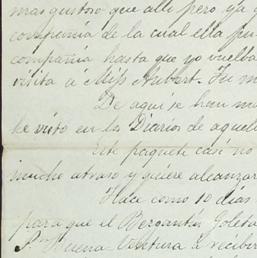 mas gustoso que alli pero ya q
compañia de la cual ella pu
compañia hasta que yo vuelba
visita á Miss Aubert. Su m
De aqui se han mu
he visto en los Diarios de aquel
Este paquete casi no
mucho atraso y quiere alcanzar
Hace como 10 dias
para que el Bergantin Goleta
S. Buena-Ventura a recibir